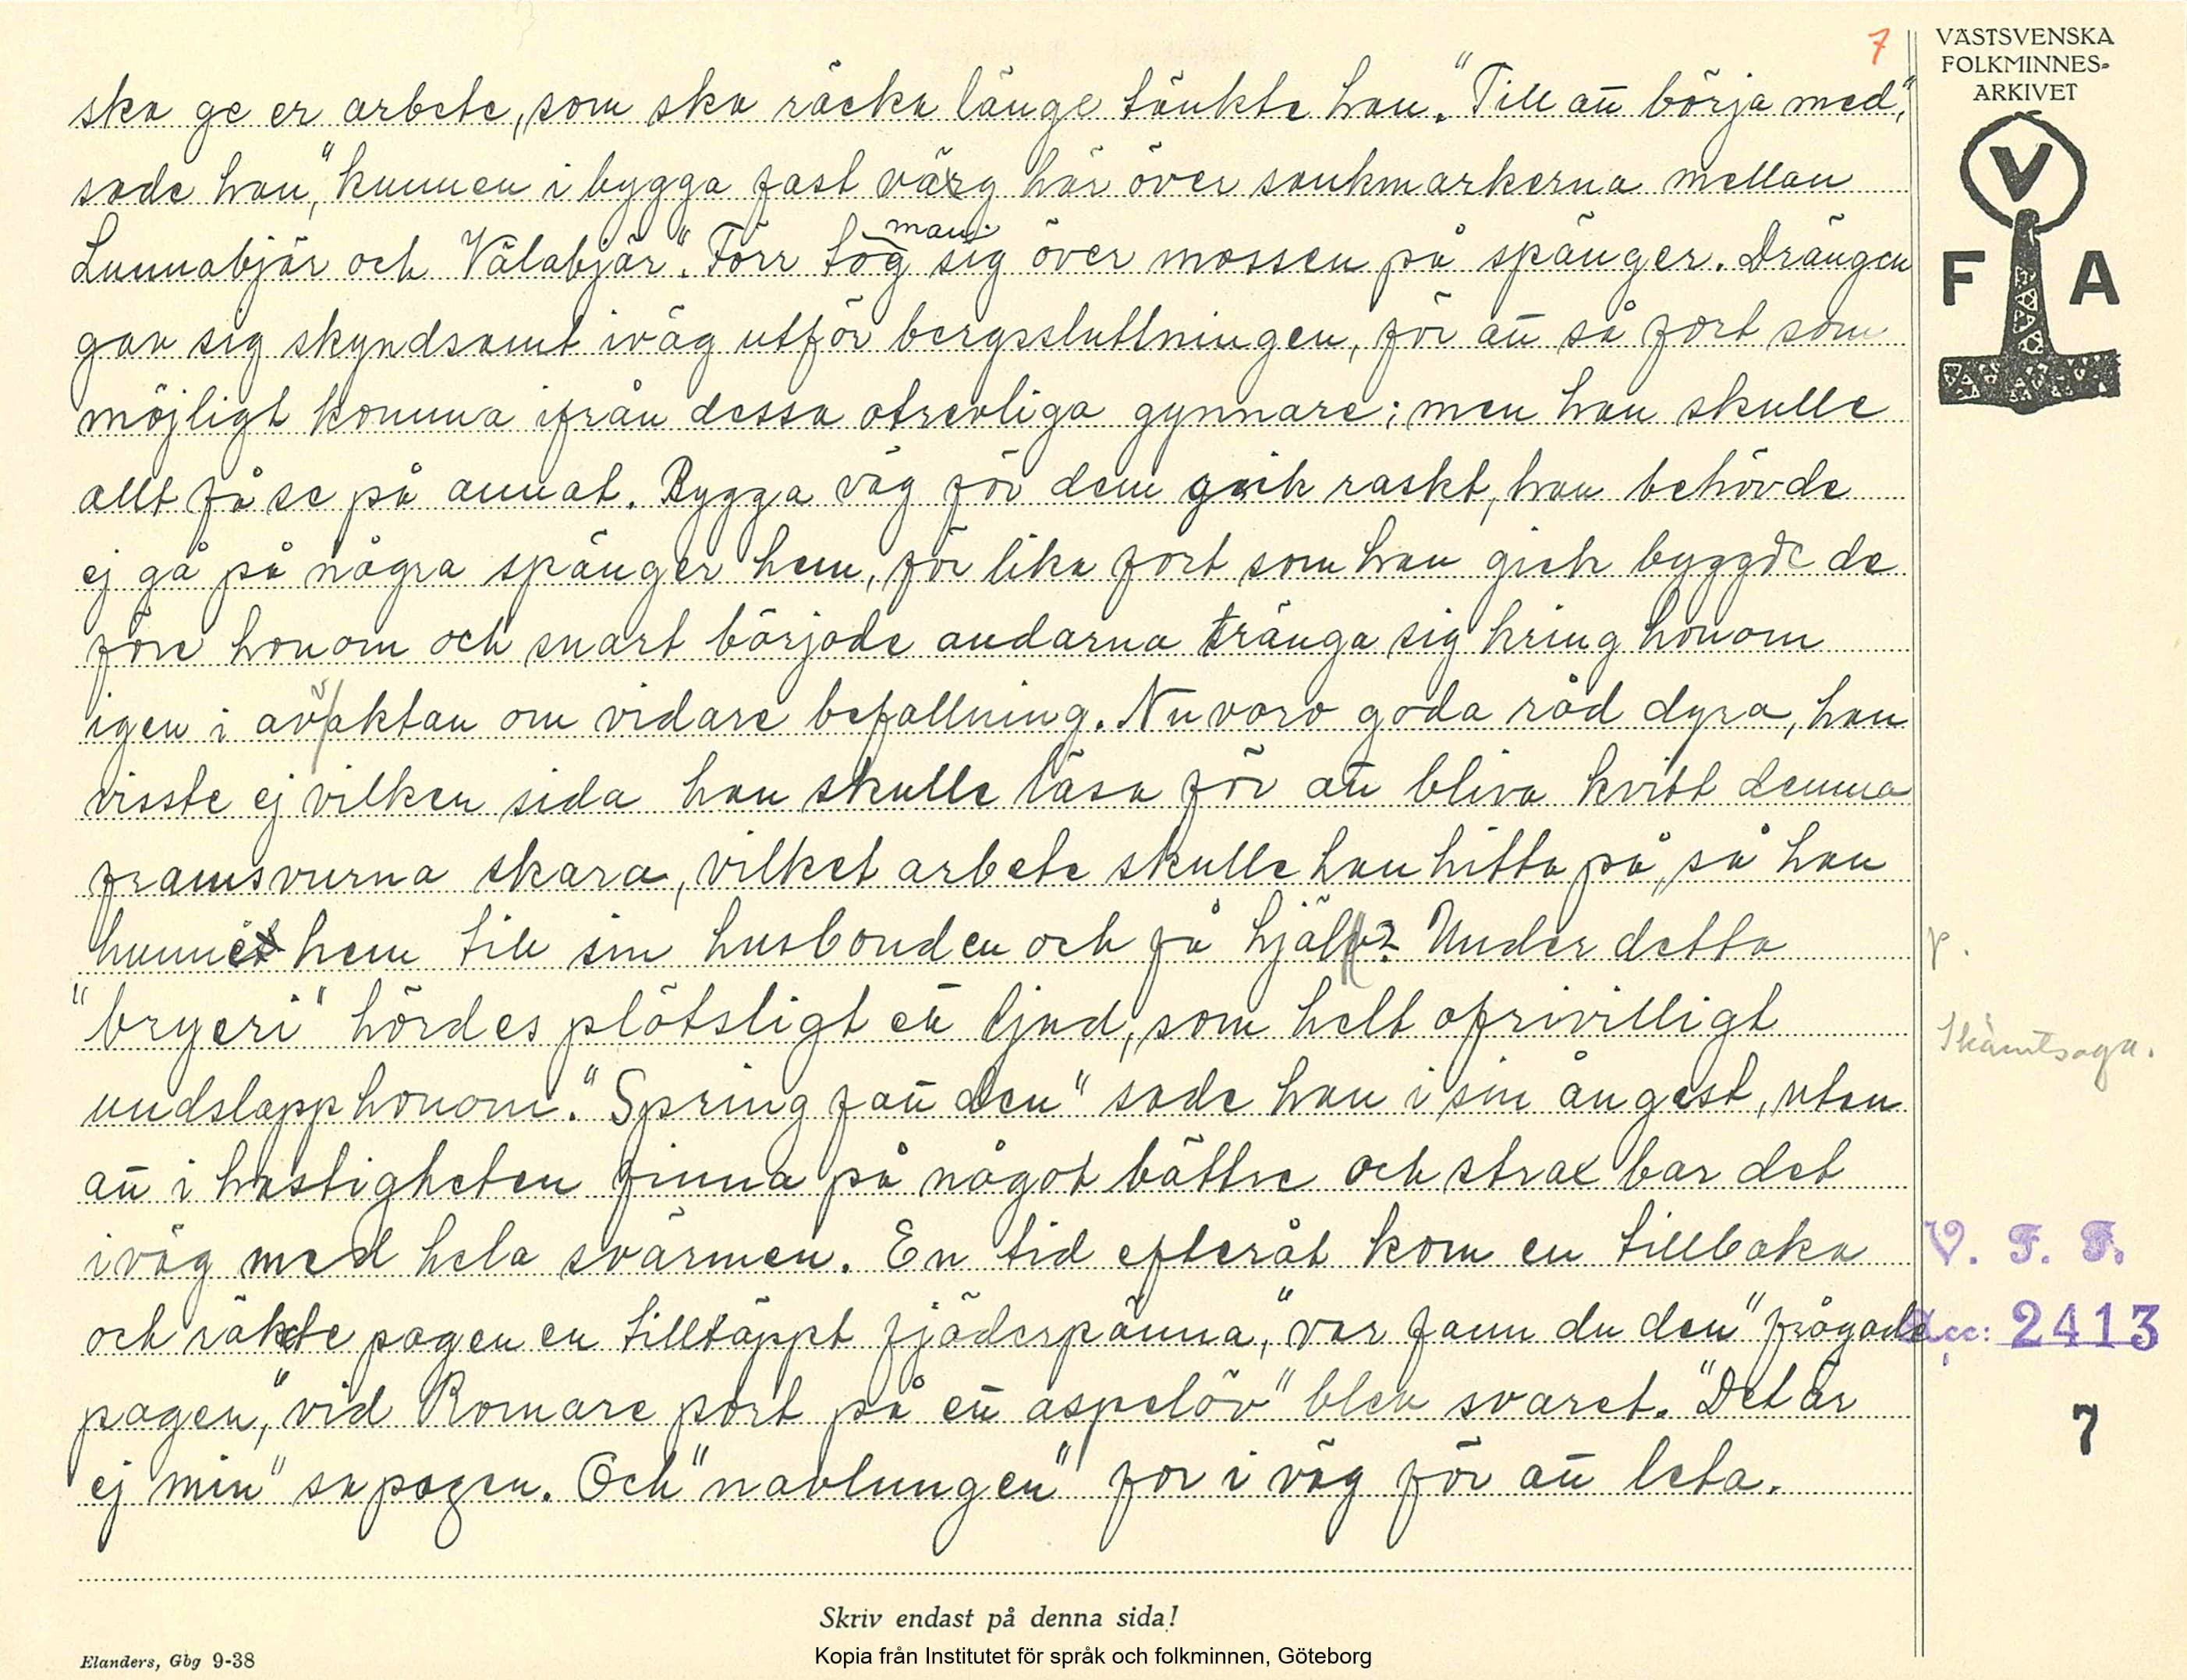 7
VÄSTSVENSKA
FOLKMINNES-
ARKIVET
V
F A
ska ge er arbete, som ska räcka länge tänkte han. "Till att börja med",
sade han, "kunnen i bygga fast väg här över sankmarkerna mellan
Lunnabjär och Välabjär". Förr tog man sig över mossen på spänger. Drängen
gav sig skyndsamt iväg utför bergssluttningen, för att så fort som
möjligt komma ifrån dessa otrevliga gynnare; men han skulle
allt få se på annat. Bygga väg för dem gick raskt, han behövde
ej gå på några spänger hem, för lika fort som han gick byggde de
före honom och snart började andarna tränga sig kring honom
igen i avvaktan om vidare befallning. Nu voro goda råd dyra, han
visste ej vilken sida han skulle läsa för att bliva kvitt denna
framsvurna skara, vilket arbete skulle han hitta på, så han
hunne hem till sin husbonden och få hjälp? Under detta
"bryeri" hördes plötsligt ett ljud, som helt ofrivilligt
undslapp honom. "Spring fatt den" sade han i sin ångest, utan
att i hastigheten finna på något bättre och strax bar det
iväg med hela svärmen. En tid efteråt kom en tillbaka
och räkte pagen en tilltäppt fjäderpänna, "var fann du den" frågade
pagen, "vid Romare port på ett aspelöv" blev svaret. "Det är
ej min" sa pagen. Och "navlungen" for i väg för att leta.
p.
Skämtsaga.
V. F. F.
Acc: 2413
7
Skriv endast på denna sida!
Elanders, Gbg 9-38
Kopia från Institutet för språk och folkminnen, Göteborg